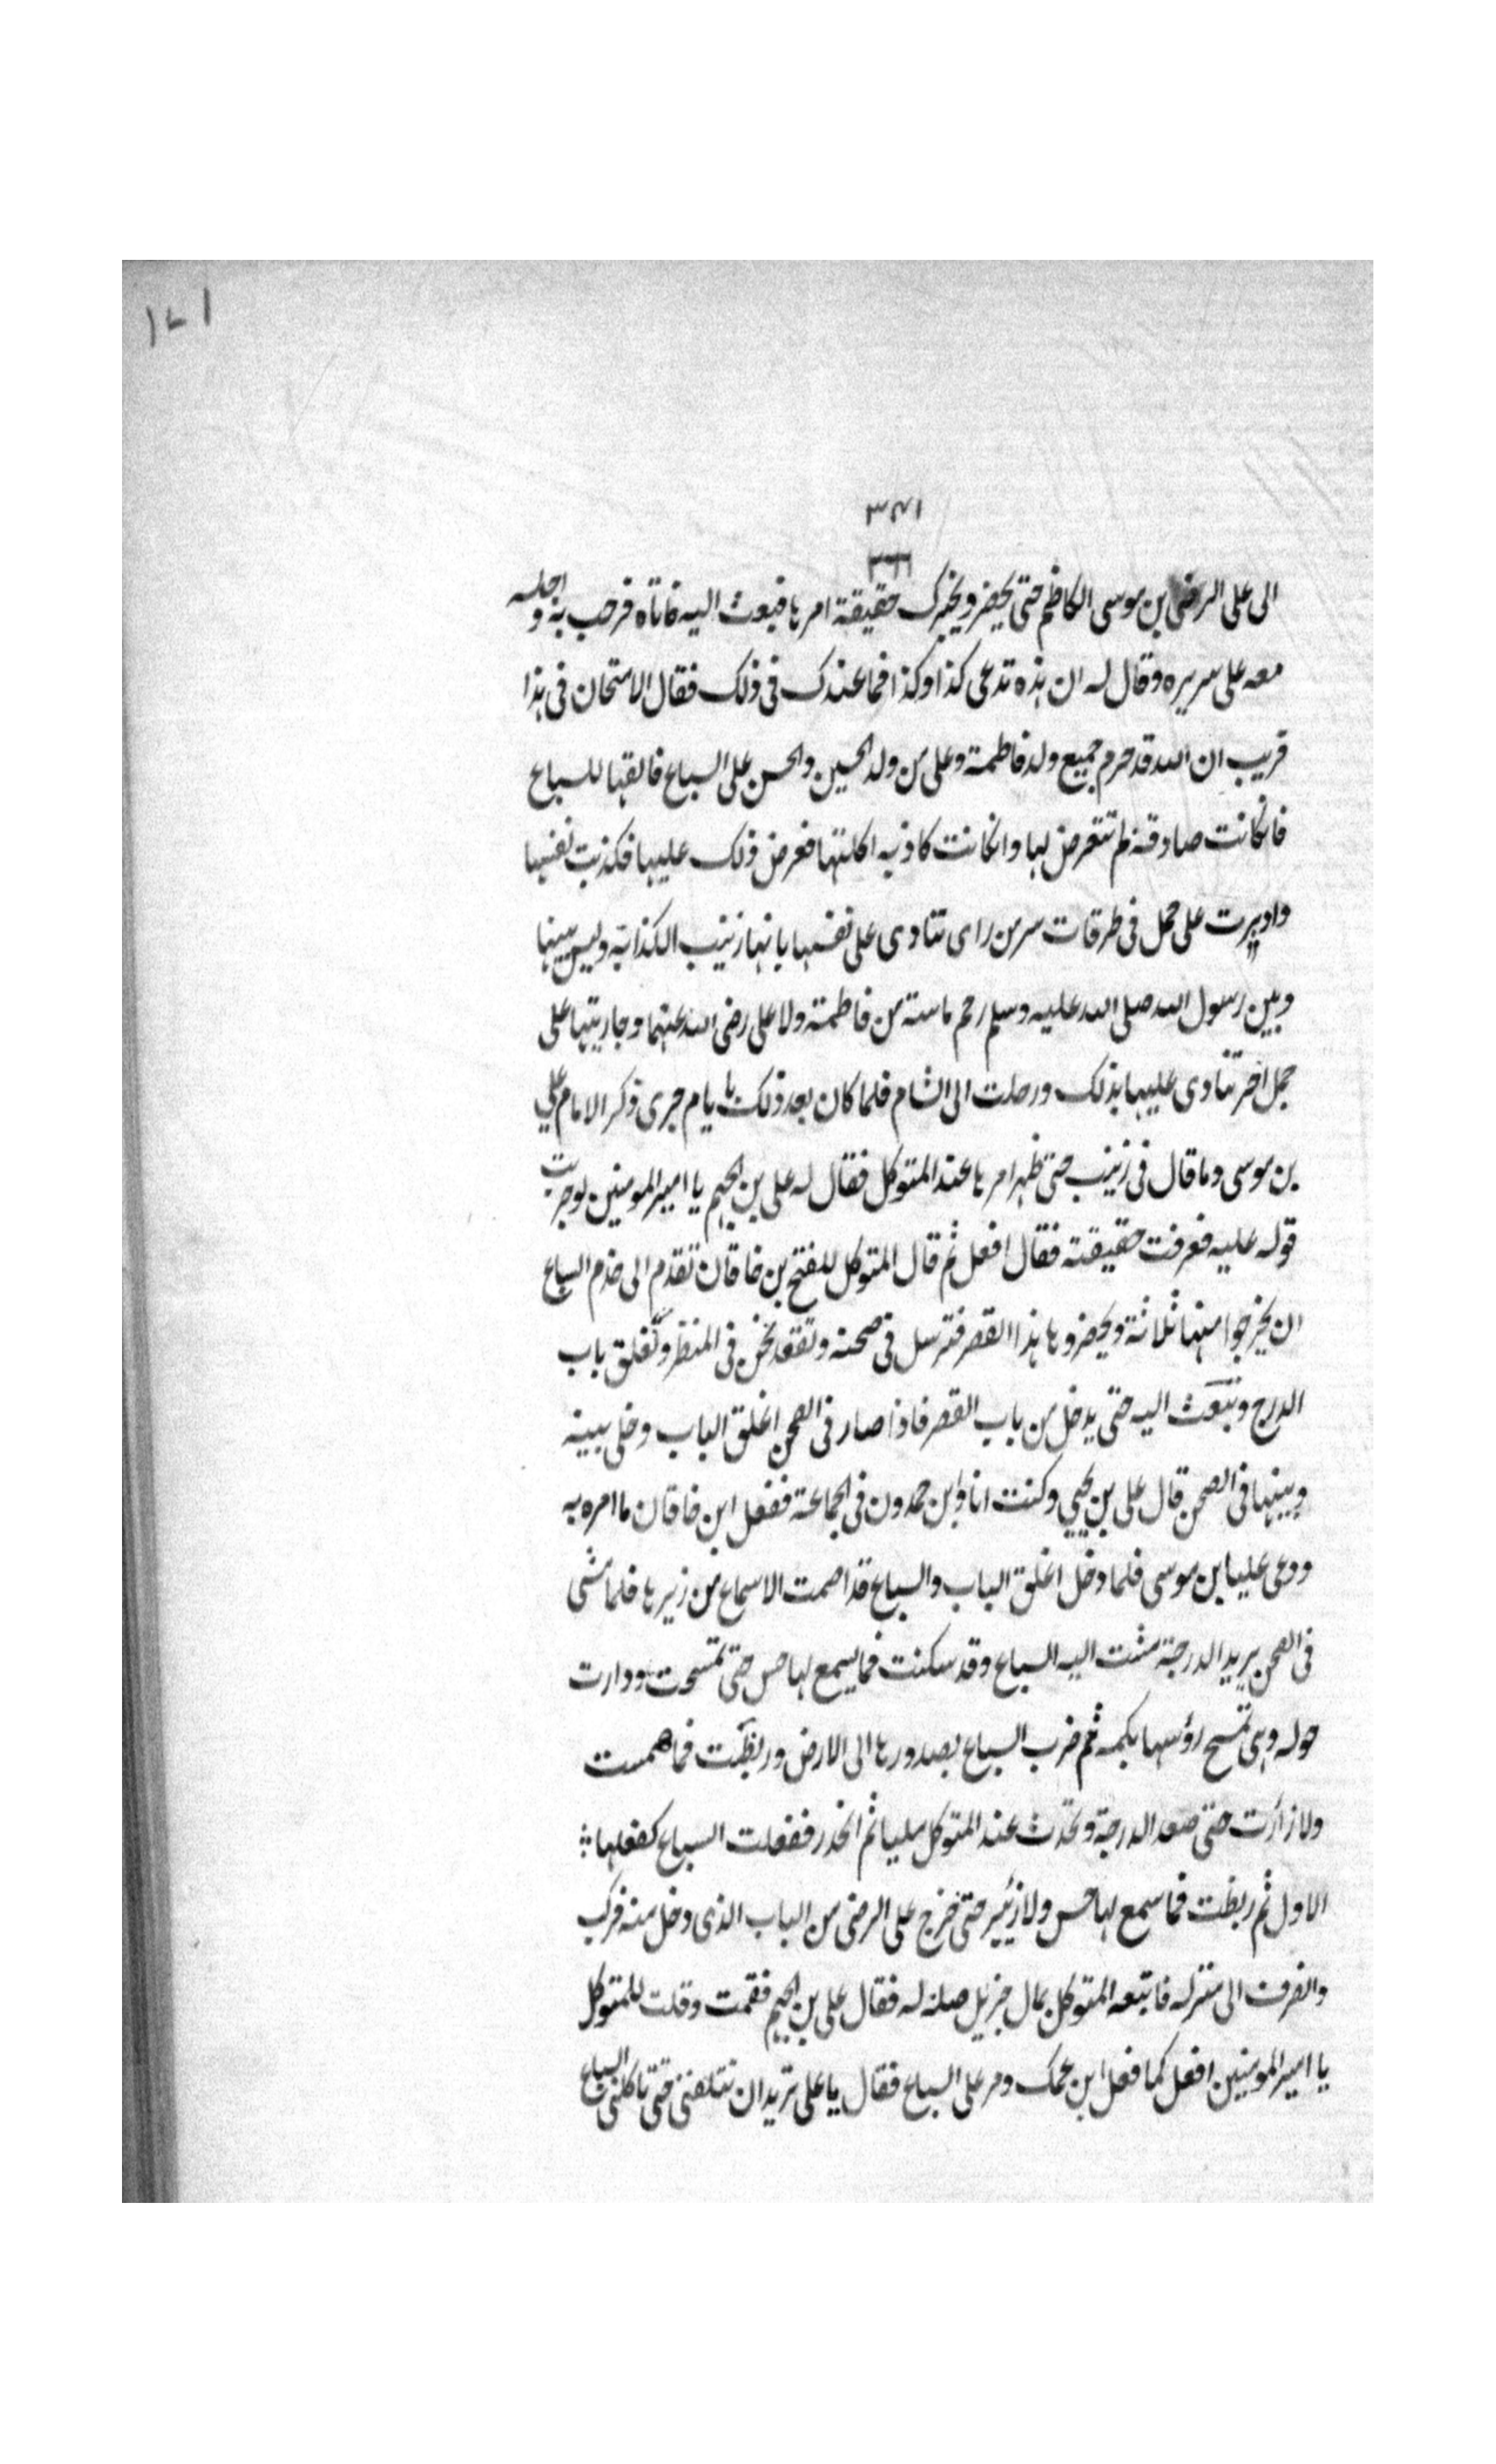 ١٧١
٣٤١
٣٦٦
الى على الرضى بن موسى الكاظم حتى يحضر ويخبرك حقيقة امرها فبعث اليه فاتاه فرحب به واجلسه
معه على سريره وقال له ان هذه تدعى كذا وكذا فما عندك فى ذلك فقال الامتحان فى هذا
قريب ان الله قد حرم جميع ولد فاطمة وعلى من ولد الحسين والحسن على السباع فالقها للسباع
فانكانت صادقة لم تتعرض لها وانكانت كاذبه اكلتها فعرض ذلك عليها فكذبت نفسها
واديرت على جمل فى طرقات سر من راى تنادى على نفسها بانها زينب الكذابة وليس بينها
وبين رسول الله صلى الله عليه وسلم رحم ماسة من فاطمة ولا على رضى الله عنهما وجاريتها على
جمل اخر تنادى عليها بذلك ورحلت الى الشام فلما كان بعد ذلك بايام جرى ذكر الامام على
بن موسى وما قال فى زينب حتى ظهر امرها عند المتوكل فقال له على بن الجهم يا امير المومنين لو جربت
قوله عليه فعرفت حقيقته فقال افعل ثم قال المتوكل للفتح بن خاقان تقدم الى خدم السباع
ان يخرجوا منها ثلاثة ويحضروها هذا القصر فترسل فى صحنه ونقعد نحن فى المنظر ونغلق باب
الدرج ونبعث اليه حتى يدخل من باب القصر فاذا صار فى الصحن اغلق الباب وخلى بينه
وبينها فى الصحن قال على بن يحيى وكنت انا وابن حمدون فى الجماعة ففعل ابن خاقان ما امره به
ودعى عليا بن موسى فلما دخل اغلق الباب والسباع قد اصمت الاسماع من زئيرها فلما مشى
فى الصحن يريد الدرجة مشت اليه السباع وقد سكنت فما يسمع لها حس حتى تمسحت ودارت
حوله وهى تمسح رؤسها بكمه ثم ضرب السباع بصدورها الى الارض وربضت فما همست
ولا زارت حتى صعد الدرجة وتحدث عند المتوكل مليا ثم انحدر ففعلت السباع كفعلها
الاول ثم ربضت فما سمع لها حس ولا زئير حتى خرج على الرضى من الباب الذى دخل منه فركب
وانصرف الى منزله فاتبعه المتوكل بمال جزيل صلة له فقال على بن الجهم فقمت وقلت للمتوكل
يا امير المومنين افعل كما فعل ابن عمك ومر على السباع فقال يا على تريد ان تتلفنى حتى تاكلنى السباع